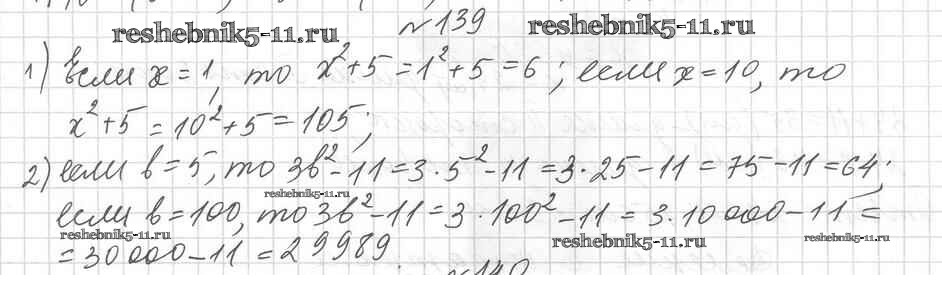 №139
reshebnik5-11.ru reshebnik5-11.ru
1) если x = 1, то x² + 5 = 1² + 5 = 6; если x = 10, то
x² + 5 = 10² + 5 = 105;
2) если b = 5, то 3b² - 11 = 3 · 5² - 11 = 3 · 25 - 11 = 75 - 11 = 64;
reshebnik5-11.ru
если b = 100, то 3b² - 11 = 3 · 100² - 11 = 3 · 10000 - 11 =
reshebnik5-11.ru reshebnik5-11.ru reshebnik5-11.ru
= 30000 - 11 = 29989